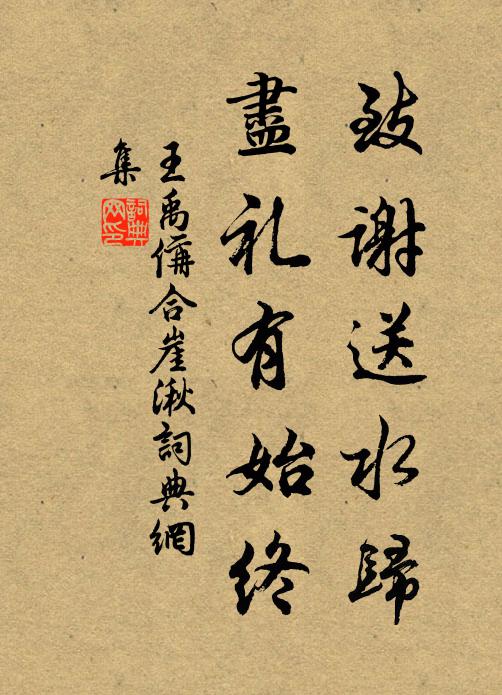 致謝送水歸
盡礼有始終
王禹偁合崖湫詞典網
集
詞典
网印